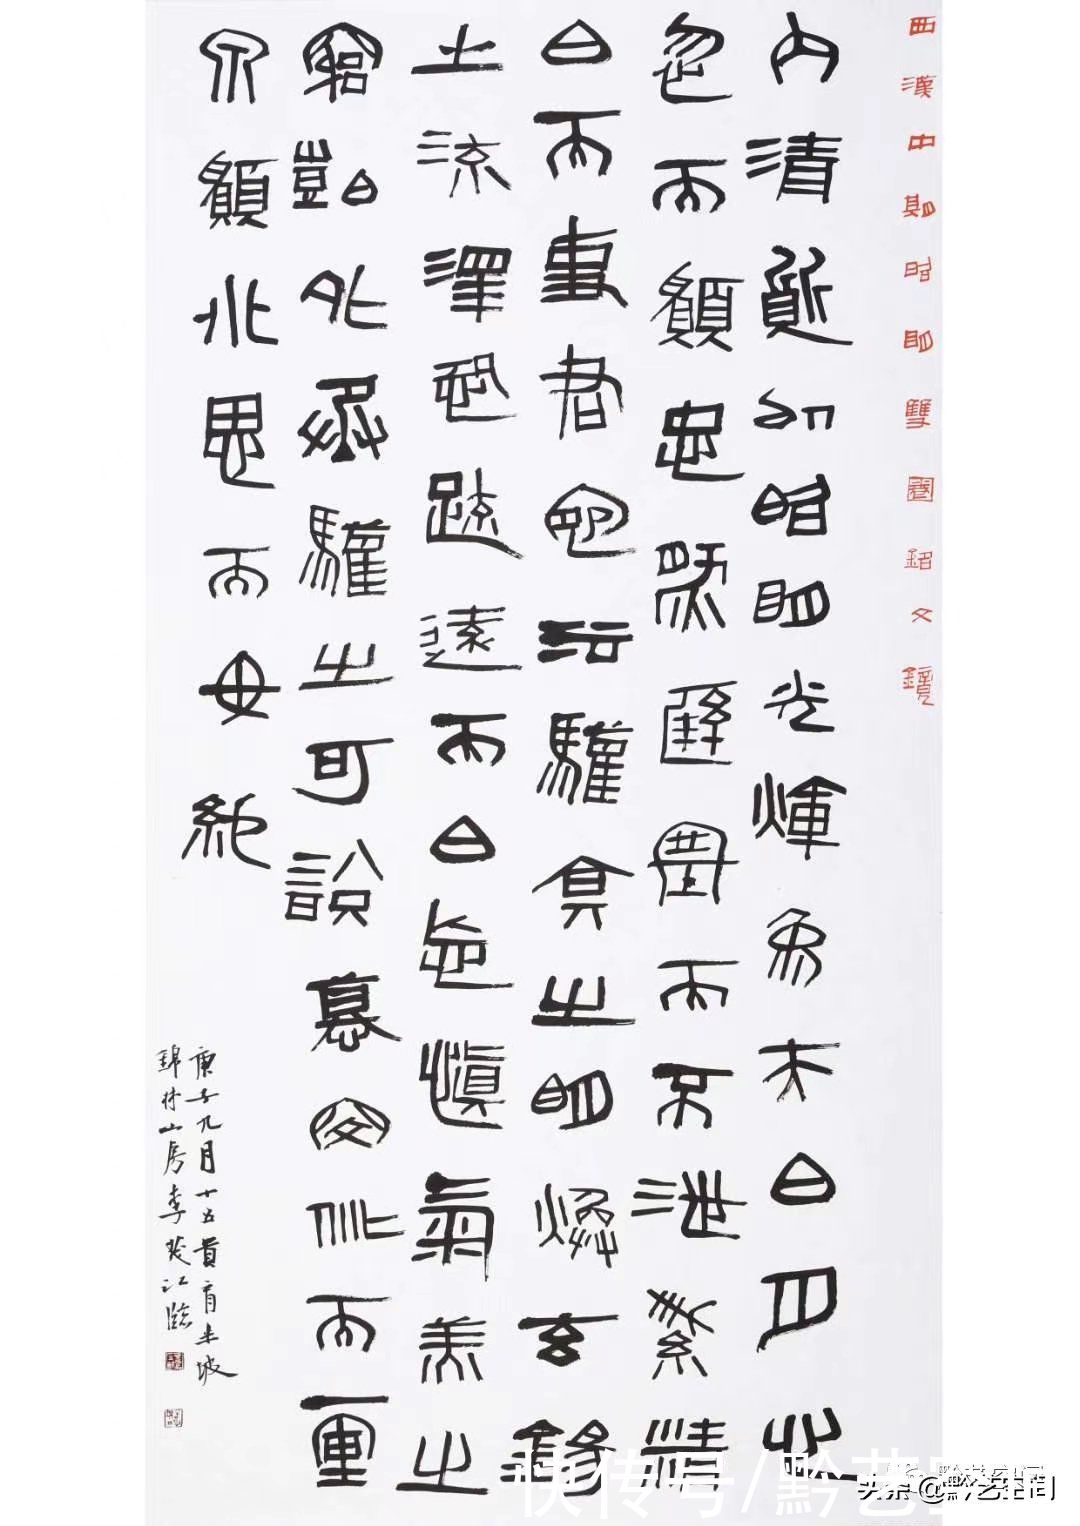 西漢中期昭明雙圈銘文鏡
內清質以昭明光煇象夫日月心
忽而願忠然壅塞而不泄絜精
白而事君怨沄驩弇之明煥玄錫
之流澤恐疏遠而日忘慎美之
窮皚外承驩之可說慕窔佻而靈
泉願永思而毋絕
庚子九月十五
錦村山房李茂江臨
快传号/黔艺
头条@黔艺空间